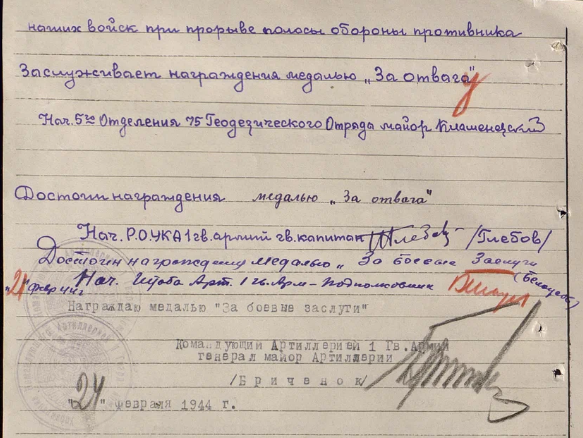 наших войск при прорыве полосы обороны противника
Заслуживает награждения медалью „За отвагу"
Нач. 5го Отделения 75 Геодезического Отряда майор
Достоин награждения медалью „За отвага"
Нач. Р.О.УКА 1 гв. армии гв. капитан /Глебов/
Достоин награждению медалью „За боевые Заслуги
"24" февр 44г Нач. Штаба Арт. 1 гв. Арм- подполковник
Награждаю медалью "За боевые заслуги"
Командующий Артиллерией 1 Гв. Армии
генерал майор Артиллерии
/Бриченок/
"24" февраля 1944 г.